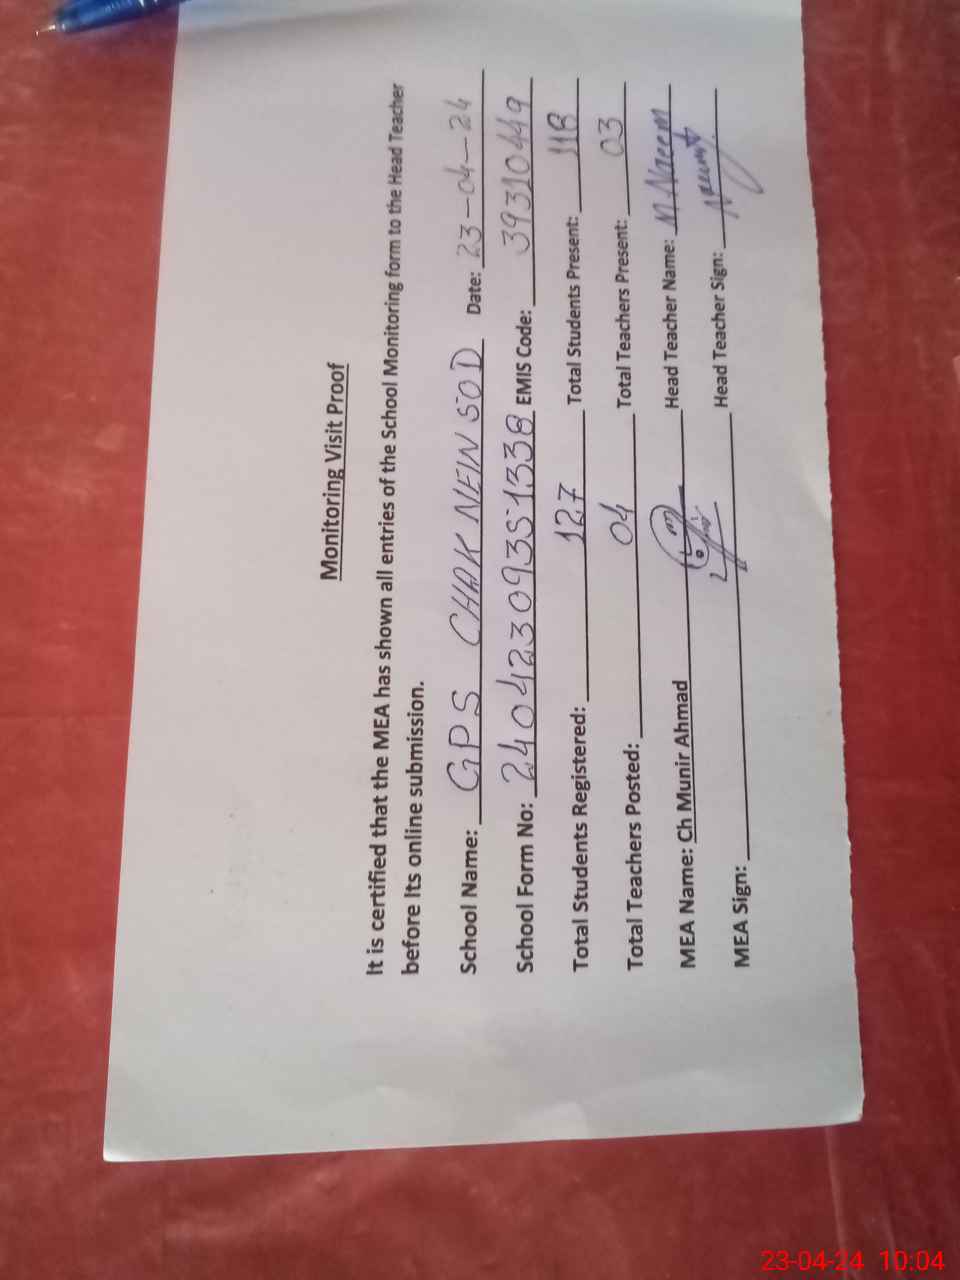 Monitoring Visit Proof
It is certified that the MEA has shown all entries of the School Monitoring form to the Head Teacher
before Its online submission.
School Name: GPS CHAK NEIN SOD Date: 23-04-24
School Form No: 24042309351338 EMIS Code: 39310449
Total Students Registered: 127 Total Students Present: 118
Total Teachers Posted: 04 Total Teachers Present: 03
MEA Name: Ch Munir Ahmad Head Teacher Name: M.Naeem
MEA Sign: Head Teacher Sign:
23-04-24 10:04